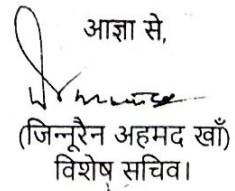 आज्ञा से,
(जिन्नूरैन अहमद खाँ)
विशेष सचिव।